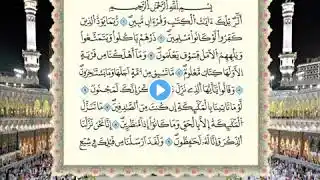 بِسْمِ اللَّهِ الرَّحْمَٰنِ الرَّحِيمِ
الٓر تِلْكَ ءَايَٰتُ الْكِتَٰبِ وَقُرْءَانٍ مُّبِينٍ ۝ رُّبَمَا يَوَدُّ الَّذِينَ
كَفَرُوا لَوْ كَانُوا مُسْلِمِينَ ۝ ذَرْهُمْ يَأْكُلُوا وَيَتَمَتَّعُوا
وَيُلْهِهِمُ الْأَمَلُ فَسَوْفَ يَعْلَمُونَ ۝ وَمَا أَهْلَكْنَا مِن قَرْيَةٍ
إِلَّا وَلَهَا كِتَابٌ مَّعْلُومٌ ۝ مَّا تَسْبِقُ مِنْ أُمَّةٍ أَجَلَهَا وَمَا يَسْتَـْٔخِرُونَ
۝ وَقَالُوا يَٰٓأَيُّهَا الَّذِي نُزِّلَ إِنَّكَ لَمَجْنُونٌ ۝
لَّوْ مَا تَأْتِينَا بِالْمَلَٰٓئِكَةِ إِن كُنتَ مِنَ الصَّٰدِقِينَ ۝ مَا نُنَزِّلُ
الْمَلَٰٓئِكَةَ إِلَّا بِالْحَقِّ وَمَا كَانُوا إِذًا مُّنظَرِينَ ۝ إِنَّا نَحْنُ نَزَّلْنَا
الذِّكْرَ وَإِنَّا لَهُ لَحَٰفِظُونَ ۝ وَلَقَدْ أَرْسَلْنَا مِن قَبْلِكَ فِي شِيَعِ